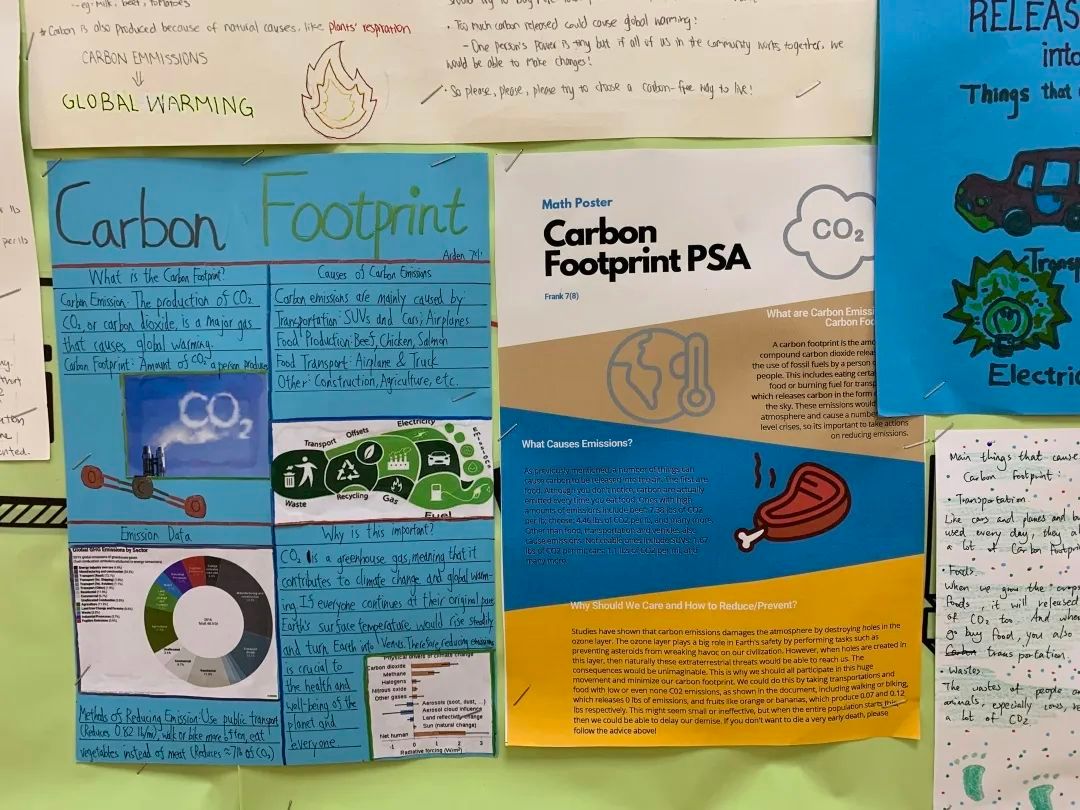 - eg. Milk, beef, tomatoes
* Carbon is also produced because of natural causes, like plants' respiration
CARBON EMMISSIONS
GLOBAL WARMING
• Too much carbon released could cause global warming!
- One person's power is tiny but if all of us in the community works together, we
would be able to make changes!
• So please, please, please try to choose a carbon-free way to live!
Carbon Footprint
Arden 7(4)
What is the Carbon Footprint?
Carbon Emission: The production of CO2.
CO2, or carbon dioxide, is a major gas
that causes global warming.
Carbon Footprint: Amount of CO2 a person produce
CO2
Causes of Carbon Emissions
Carbon emissions are mainly caused by:
Transportation: SUVs and Cars; Airplanes
Food Production: Beef, Chicken, Salmon
Food Transport: Airplane & Truck
Other: Construction, Agriculture, etc.
Transport
Offsets
Electricity
Waste
Recycling
Gas
Fuel
Emission Data
Global GHG Emissions by Sector
Why is this important?
CO2 is a greenhouse gas, meaning that it
contributes to climate change and global warm-
ing. If everyone continues at their original pace,
Earth's surface temperature would rise steadily
and turn Earth into Venus. Therefore, reducing emissions
is crucial to
the health and
well-being of the
planet and
everyone
Physical drivers of climate change
Carbon dioxide
Methane
Halogens
Nitrous oxide
Other gases
Aerosols (soot, dust, ...)
Aerosol cloud influence
Land reflectivity change
Sun (natural change)
Net human
-1 0 1 2 3
Radiative forcing (W/m²)
Methods of Reducing Emission: Use public transport
(Reduces 0.82 lb/mi), walk or bike more often, eat
vegetables instead of meat (Reduces ≈ 7 lb of CO2)
Math Poster
Carbon
Footprint PSA
Frank 7(8)
CO2
What are Carbon Emissi
Carbon Foo
A carbon footprint is the amo
compound carbon dioxide relea
the use of fossil fuels by a person o
people. This includes eating certa
food or burning fuel for transp
which releases carbon in the form o
the sky. These emissions would
atmosphere and cause a numbe
level crises, so its important to take actions
on reducing emissions.
What Causes Emissions?
As previously mentioned, a number of things can
cause carbon to be released into the air. The first are
food. Although you don't notice, carbon are actually
emitted every time you eat food. Ones with high
amounts of emissions include beef: 7.36 lbs of CO2
per lb, cheese: 4.46 lbs of CO2 per lb, and many more.
Other than food, transportation and vehicles also
cause emissions. Notable ones include SUVs: 1.57
lbs of CO2 per mi, cars: 1.1 lbs of CO2 per mi, and
many more.
Why Should We Care and How to Reduce/Prevent?
Studies have shown that carbon emissions damages the atmosphere by destroying holes in the
ozone layer. The ozone layer plays a big role in Earth's safety by performing tasks such as
preventing asteroids from wreaking havoc on our civilization. However, when holes are created in
this layer, then naturally these extraterrestrial threats would be able to reach us. The
consequences would be unimaginable. This is why we should all participate in this huge
movement and minimize our carbon footprint. We could do this by taking transportations and
food with low or even none CO2 emissions, as shown in the document, including walking or biking,
which releases 0 lbs of emissions, and fruits like orange or bananas, which produce 0.07 and 0.12
lbs respectively. This might seem small or ineffective, but when the entire population starts this,
then we could be able to delay our demise. If you don't want to die a very early death, please
follow the advice above!
RELEAS
into
Things that
Transp
Electric
Main things that cause
Carbon footprint:
• Transportation
Like cars and planes and bu
used every day, they a
a lot of Carbon footprin
• Foods
When we grow the crops
foods, it will released
of CO2 too. And when
go buy food, you also
transportation
• Wastes
The wastes of people a
animals, especially cows, re
a lot of CO2